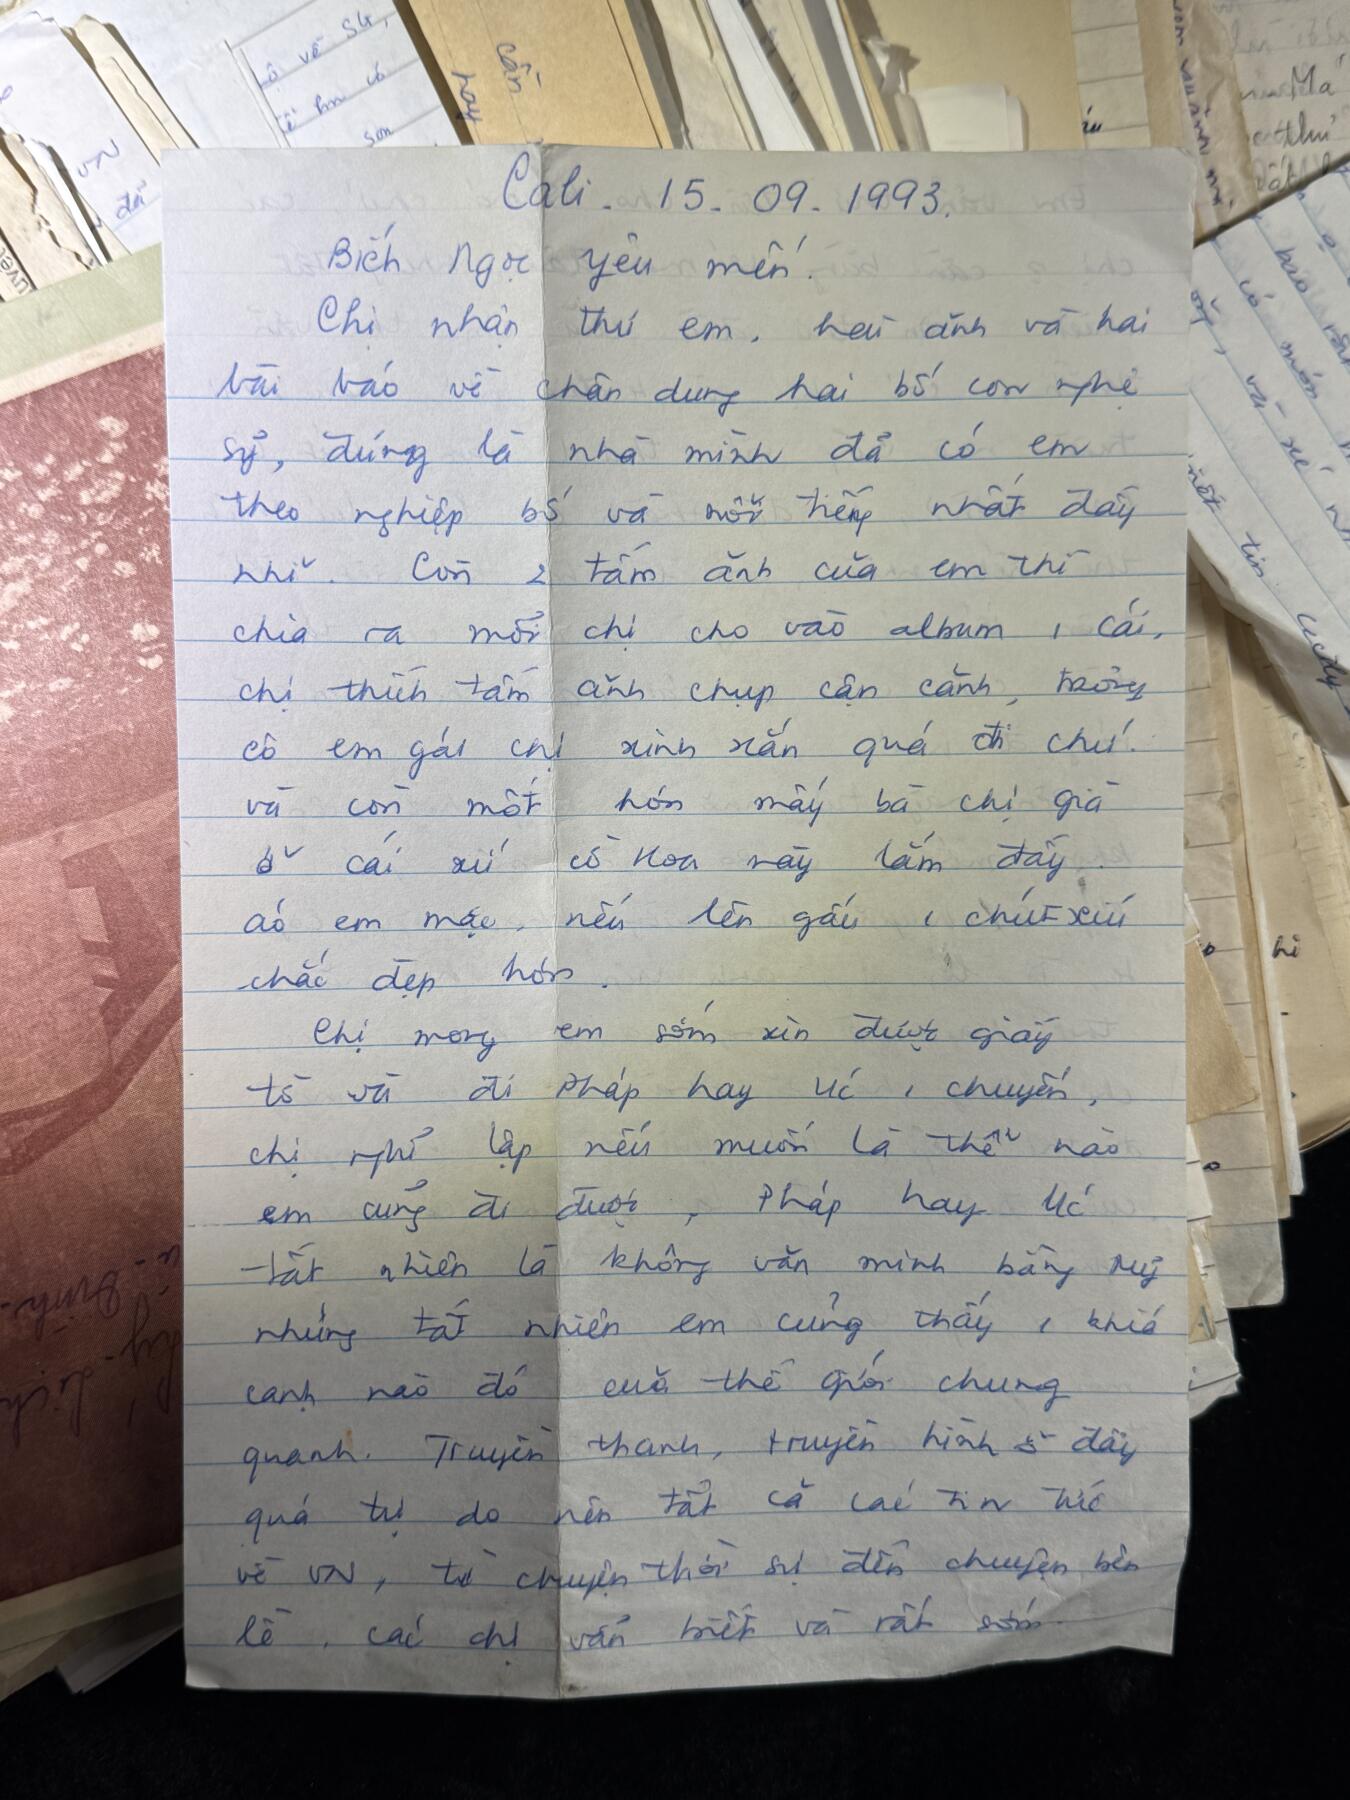 Cali. 15. 09. 1993.
Bích Ngọc yêu mến.
Chị nhận thư em, hai ảnh và hai
bài báo về chân dung hai bố con nghệ
sỹ, đúng là nhà mình đả có em
theo nghiệp bố và nổi tiếng nhất đấy
nhỉ. Còn 2 tấm ảnh của em thì
chia ra mỗi chị cho vào album 1 cái,
chị thích tấm ảnh chụp cận cảnh, trông
cô em gái chị xinh xắn quá đi chứ.
và còn mốt hơn mấy bà chị già
ở cái xứ cờ Hoa này lắm đấy.
áo em mặc, nếu lên gấu 1 chút xíu
chắc đẹp hơn.
Chị mong em sớm xin được giấy
tờ và đi Pháp hay Úc 1 chuyến,
chị nghỉ lập nếu muốn là thể nào
em cũng đi được, Pháp hay Úc
tất nhiên là không văn minh bằng Mỹ
nhưng tất nhiên em củng thấy 1 khiá
cạnh nào đó của thế giới chung
quanh. Truyền thanh, truyền hình ở đây
quá tự do nên tất cả các tin tức
về VN, từ chuyện thời sự đến chuyện bên
lề, các chị vẩn biết và rất sớm.